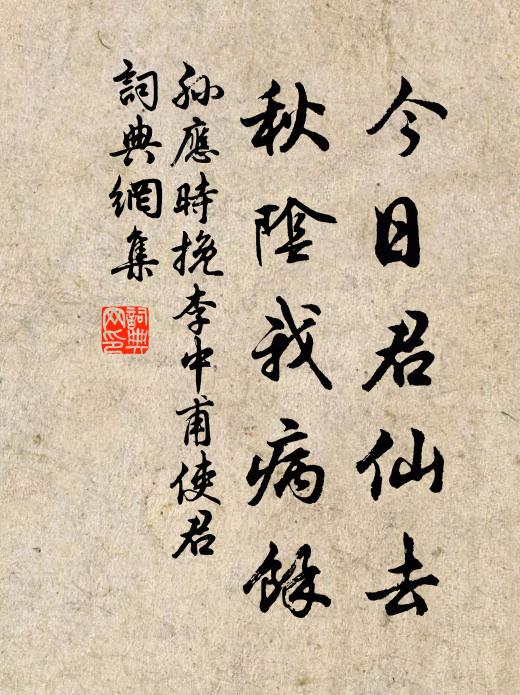 今日君仙去
秋陰我病餘
孫應時挽李中甫使君
詞典網集
詞典
网印